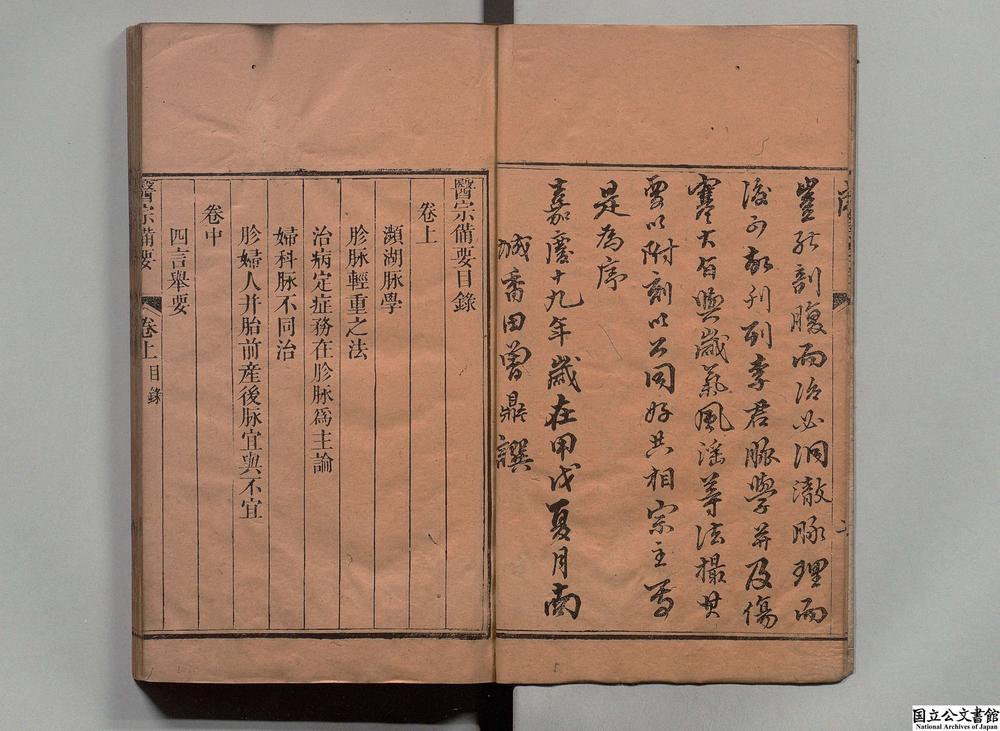 豈能剖腹而治必洞澈脉理而
後可故列李君脈學并及傷
寒大旨與歲氣風淫等法撮其
要以附刻以公同好共相宗主焉
是為序
嘉慶十九年歲在甲戌夏月南
城香田曾鼎譔
醫宗備要目錄
卷上
瀕湖脉學
胗脉輕重之法
治病定症務在胗脉為主論
婦科脉不同治
胗婦人并胎前產後脉宜與不宜
卷中
四言舉要
醫宗備要
卷上目錄
国立公文書館
National Archives of Japan